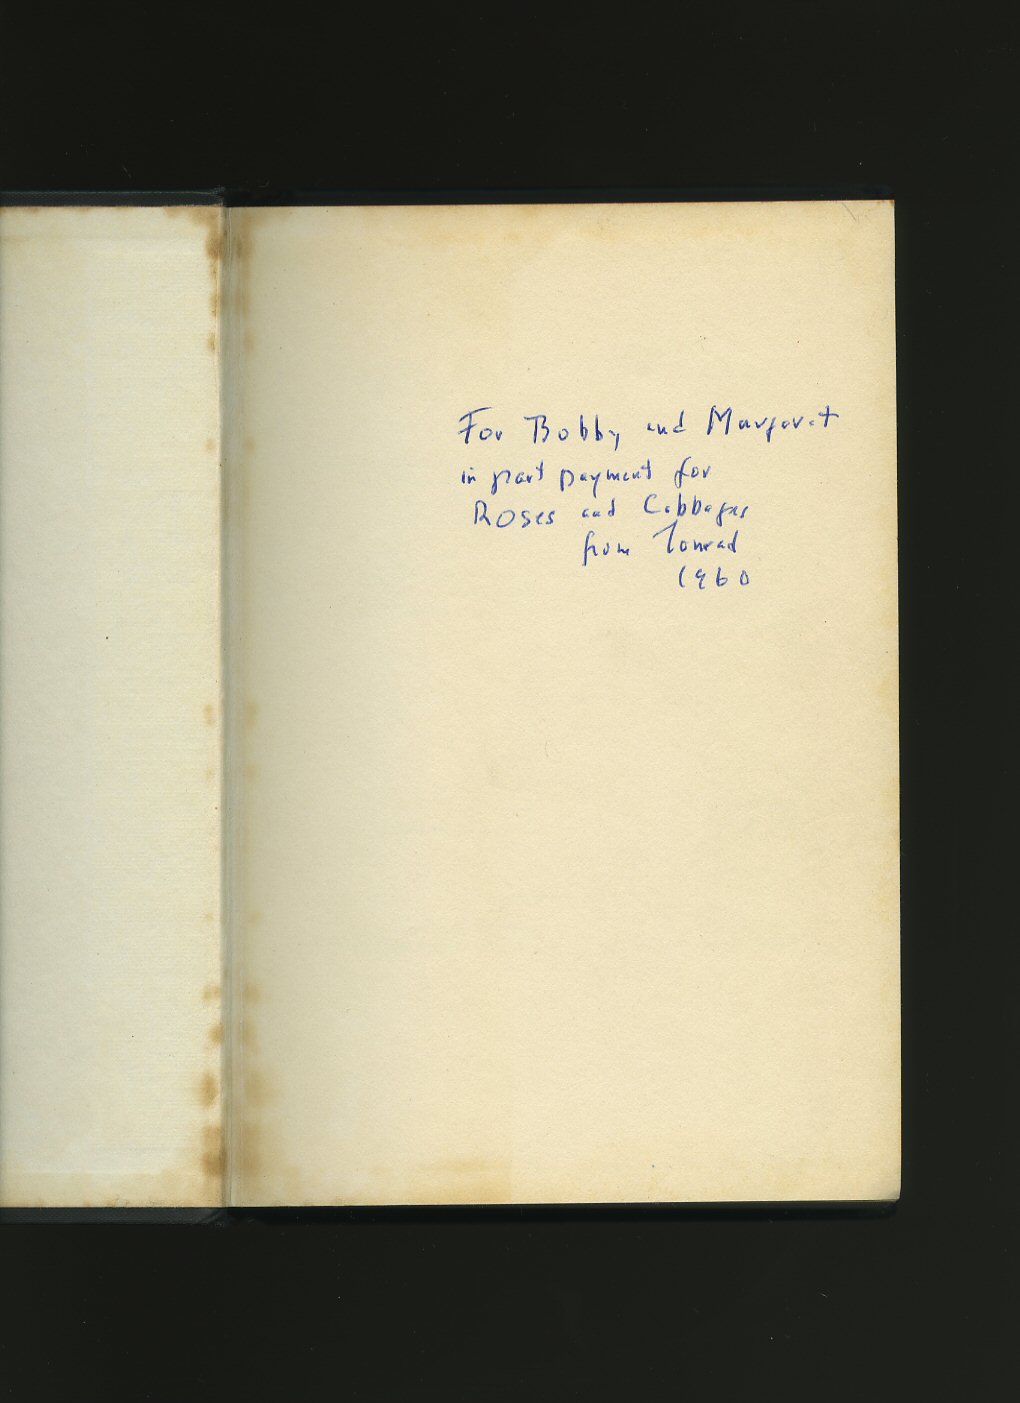 For Bobby and Margaret
in part payment for
Roses and Cabbages
from Conrad
1960